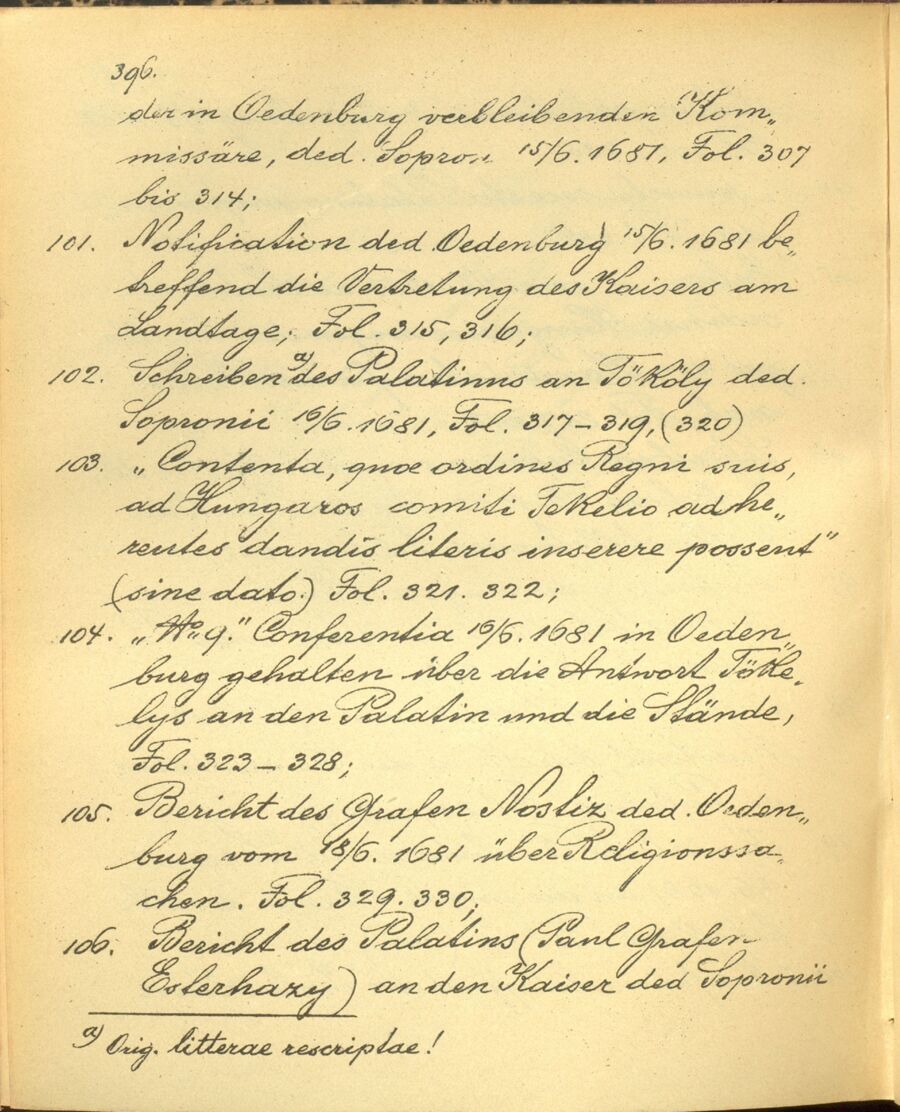 396.
der in Oedenburg verbleibenden Kom„
missäre, ded. Sopron 15/6. 1681, Fol. 307
bis 314;
101. Notification ded. Oedenburg 15/6. 1681 be„
treffend die Vertretung des Kaisers am
Landtage; Fol. 315, 316;
102. Schreiben a) des Palatinus an Tököly ded.
Sopronii 16/6. 1681, Fol. 317–319, (320)
103. „Contenta, quae ordines Regni suis,
ad Hungaros comiti Tekelio adhe„
rentes dandis literis inserere possent"
(sine dato.) Fol. 321. 322;
104. „No 9." Conferentia 16/6. 1681 in Oeden„
burg gehalten über die Antwort Töke„
lys an den Palatin und die Stände,
Fol. 323 – 328;
105. Bericht des Grafen Nostiz ded. Oeden„
burg vom 18/6. 1681 über Religionssa„
chen. Fol. 329. 330;
106. Bericht des Palatins (Paul Grafen
Esterhazy) an den Kaiser ded Sopronii
a) Orig. litterae rescriptae!